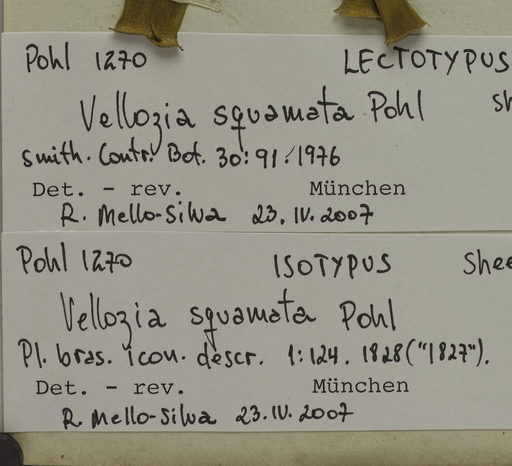 Pohl 1270 LECTOTYPUS
Vellozia squamata Pohl
Smith. Contr. Bot. 30: 91. 1976
Det. - rev. München
R. Mello-Silva 23.IV.2007
Pohl 1270 ISOTYPUS
Vellozia squamata Pohl
Pl. bras. icon. descr. 1: 124. 1828 ("1827").
Det. - rev. München
R. Mello-Silva 23.IV.2007